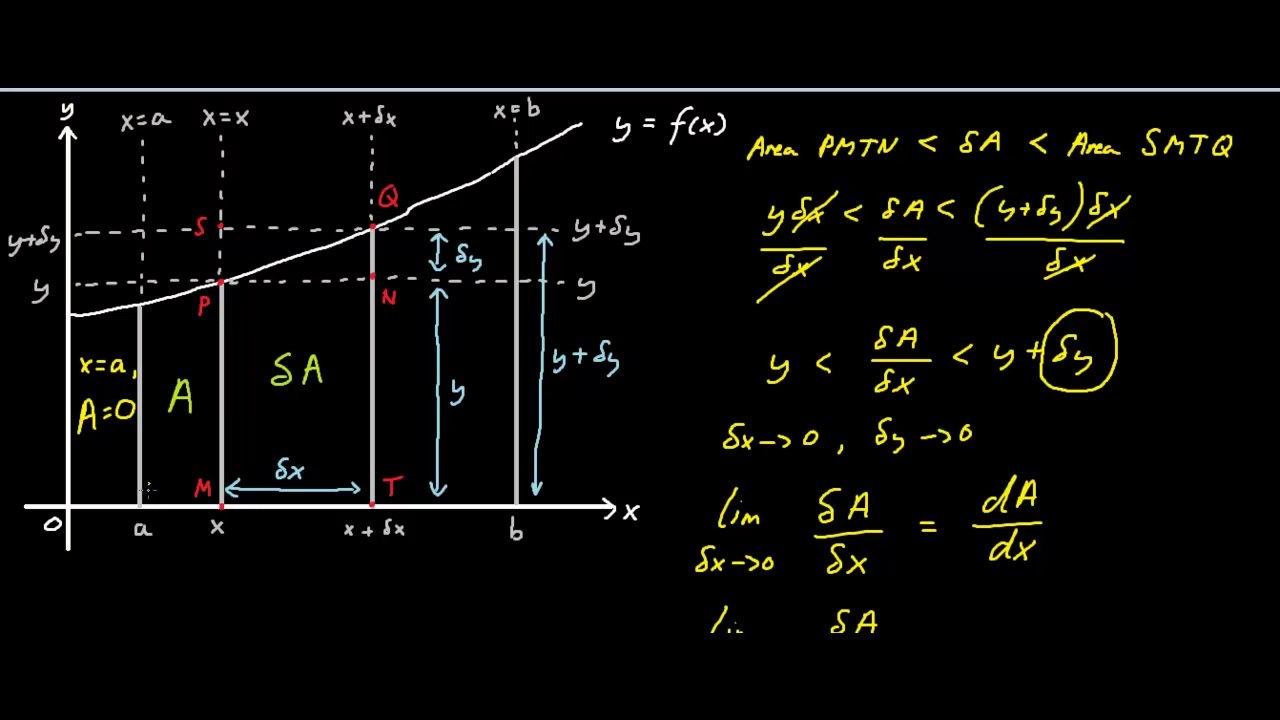 y
x=a
x=x
x+δx
x=b
y = f(x)
S
Q
y+δy
y+δy
δy
y
P
N
y
x=a,
A=0
A
δA
y
y+δy
M
δx
T
O
a
x
x+δx
b
x
Area PMTN < δA < Area SMTQ
yδx/δx < δA/δx < (y+δy)δx/δx
y < δA/δx < y+δy
δx→0, δy→0
lim δx→0 δA/δx = dA/dx
δA